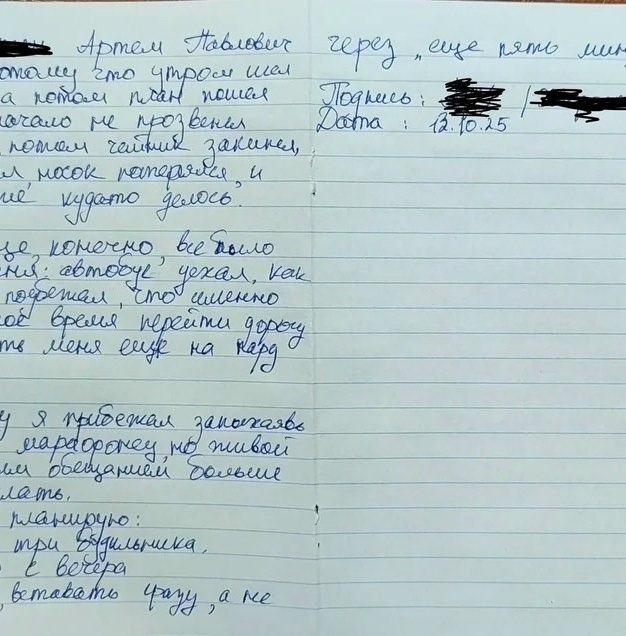 Артем Павлович
потому что утром шел
а потом план пошел
начало не прозвенел
потом чайник закипел,
л, носок потерялся, и
ие кудато делось.
це, конечно, все было
ня: автобус уехал, как
подбежал, что именно
ое время перейти дорогу
ть меня еще на пард
у я прибежал запыхаявь
марафонец, но живой
им обещанием больше
лать.
планирую:
три будильника,
с вечера
, вставать сразу, а не
через „еще пять мин
Подпись: /
Дата : 12.10.25